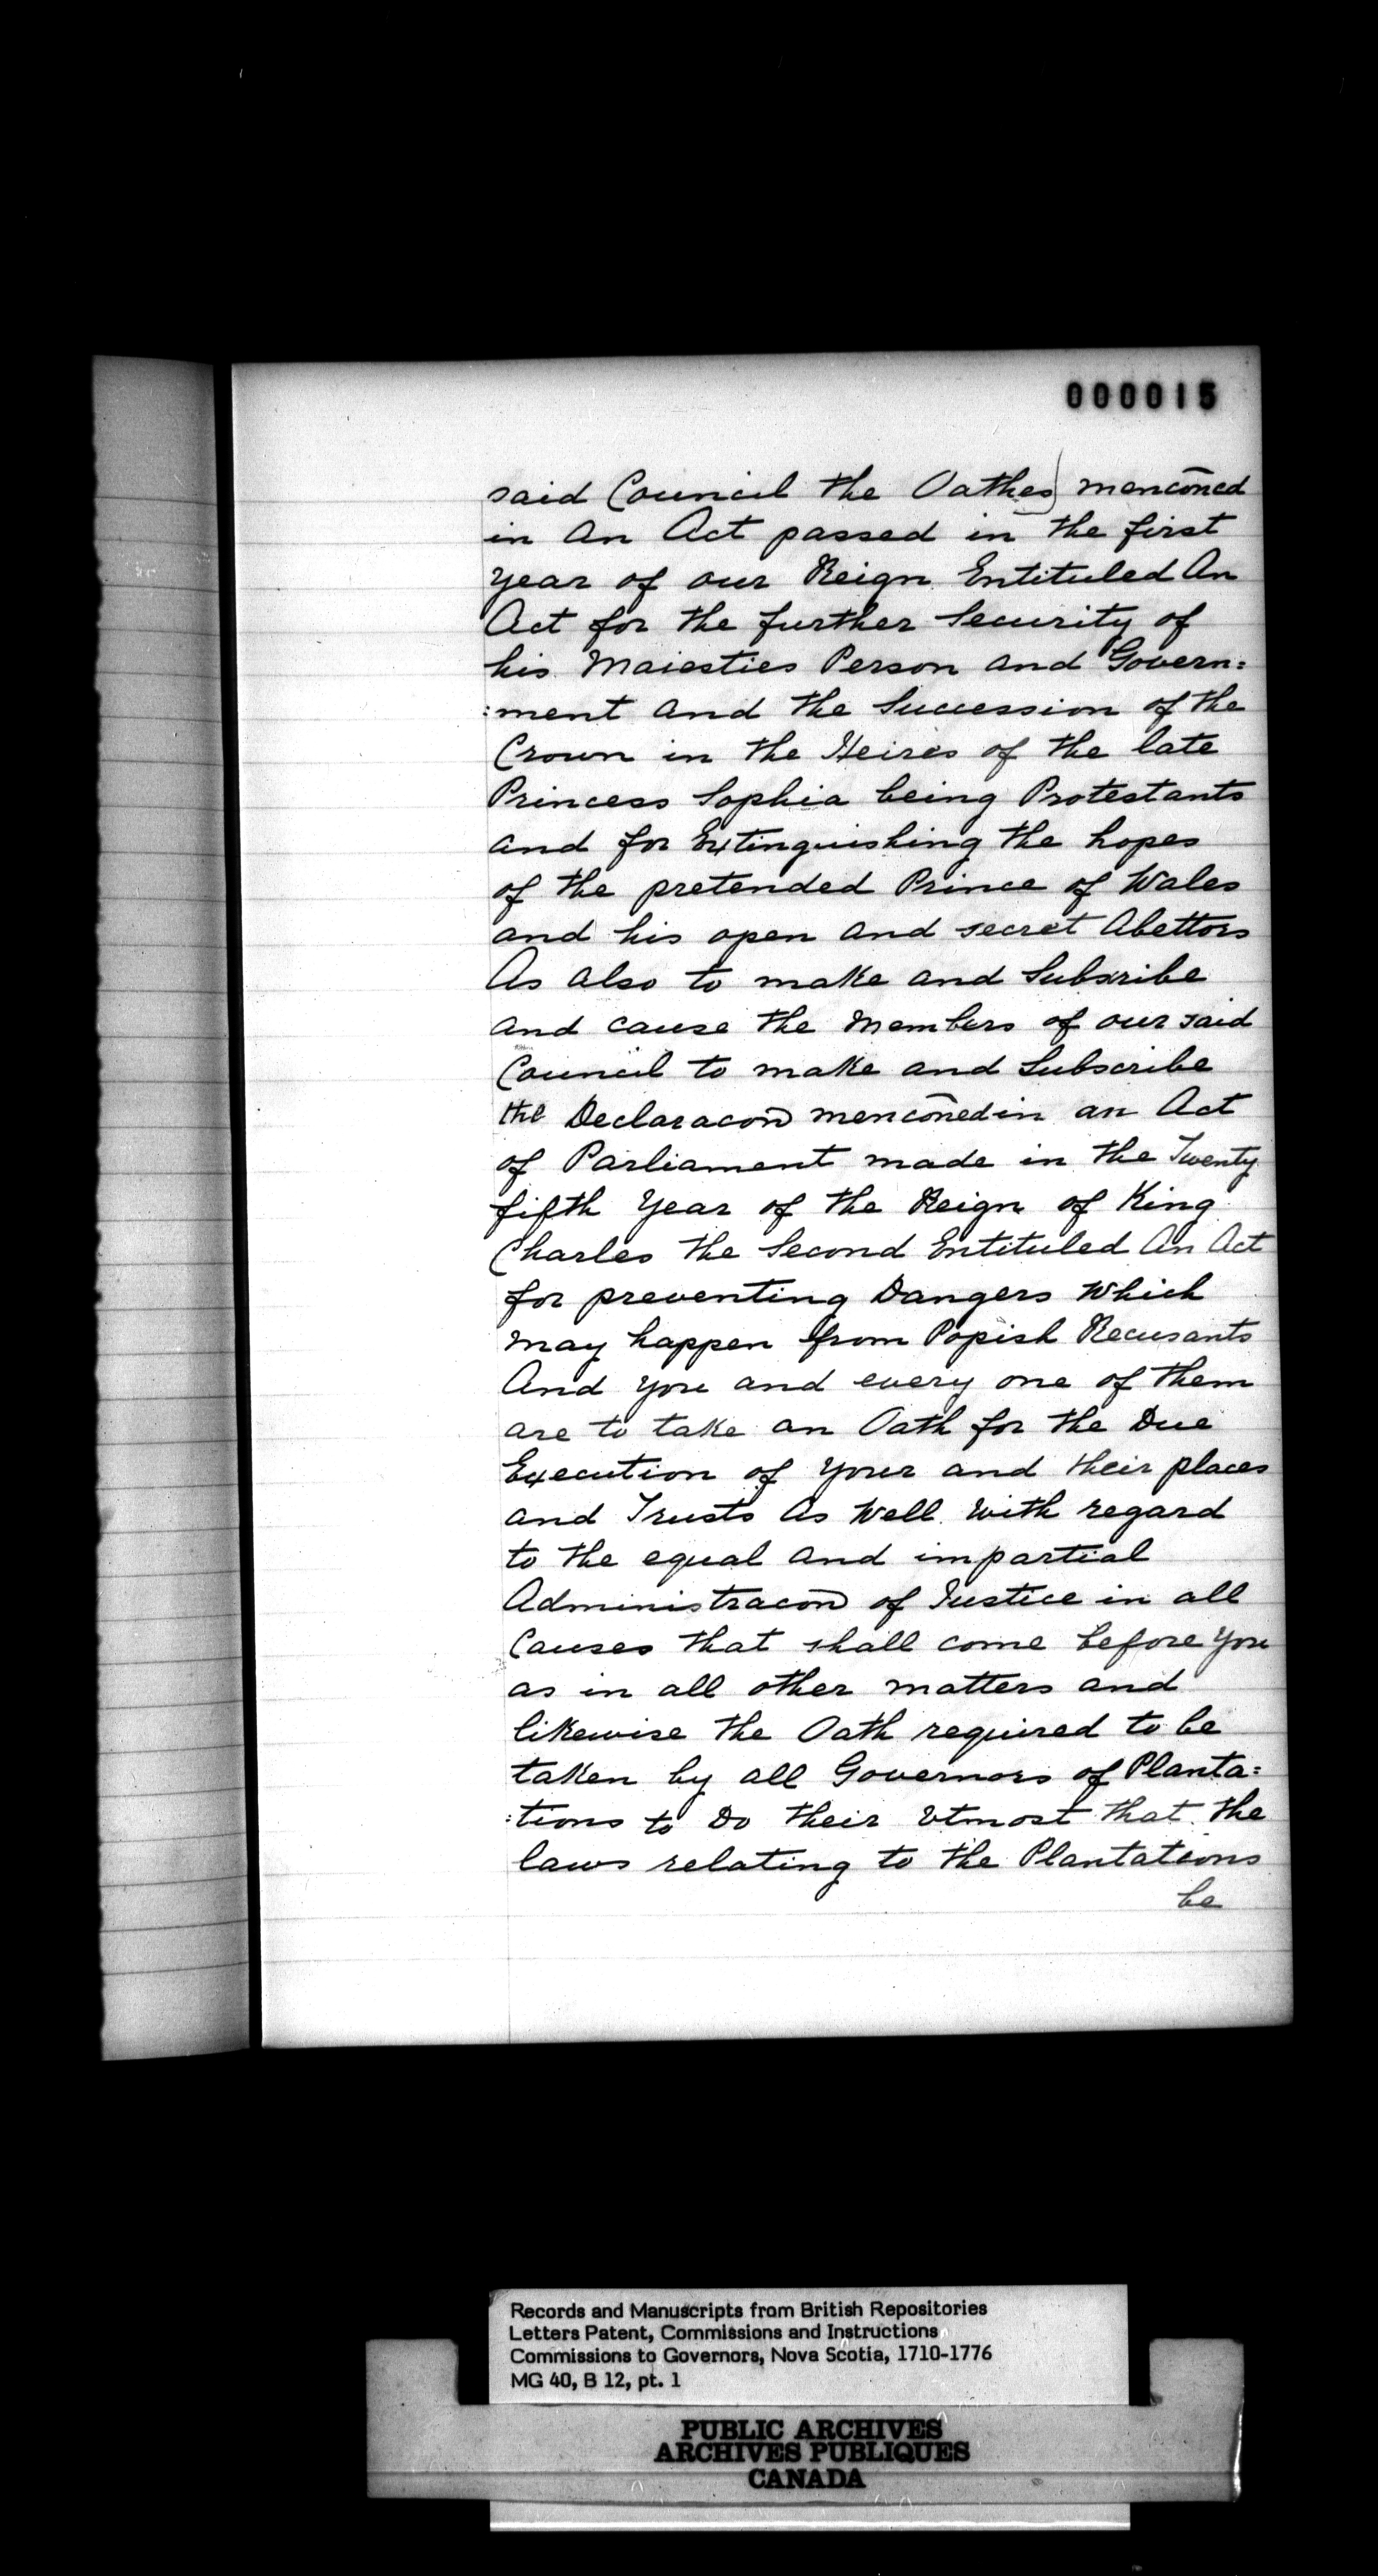 000015
said Council the Oathes) mencōned
in An Act passed in the first
year of our Reign Entituled An
Act for the further Security of
his Maiesties Person and Govern=
:ment and the Succession of the
Crown in the Heires of the late
Princess Sophia being Protestants
and for Extinguishing the hopes
of the pretended Prince of Wales
and his open and secret Abettors
As also to make and Subscribe
and cause the Members of our said
Council to make and Subscribe
the Declaracon̄ mencōned in an Act
of Parliament made in the Twenty
fifth Year of the Reign of King
Charles the Second Entituled An Act
for preventing Dangers which
may happen from Popish Recusants
And you and every one of them
are to take an Oath for the Due
Execution of your and their places
and Trusts As Well with regard
to the equal and impartial
Administracon̄ of Justice in all
Causes that shall come before you
as in all other matters and
likewise the Oath required to be
taken by all Governors of Planta=
:tions to Do their Utmost that the
laws relating to the Plantations
be
Records and Manuscripts from British Repositories
Letters Patent, Commissions and Instructions
Commissions to Governors, Nova Scotia, 1710-1776
MG 40, B 12, pt. 1
PUBLIC ARCHIVES
ARCHIVES PUBLIQUES
CANADA